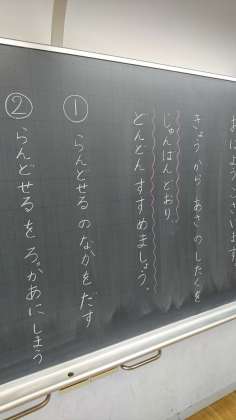 おはようございます。
きょうから あさのしたくを
じゅんばんどおり、
どんどんすすめましょう。
① らんどせるのなかをだす
② らんどせるを ろっかあにしまう